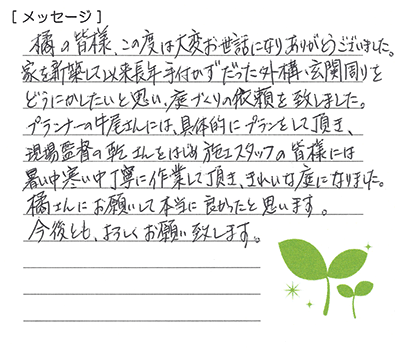 [ メッセージ ]
橘の皆様、この度は大変お世話になりありがとうございました。
家を新築して以来長年手付かずだった外構・玄関周りを
どうにかしたいと思い、庭づくりの依頼を致しました。
プランナーの牛尾さんには、具体的にプランをして頂き、
現場監督の乾さんをはじめ施工スタッフの皆様には
暑い中寒い中丁寧に作業して頂き、きれいな庭になりました。
橘さんにお願いして本当に良かったと思います。
今後とも、よろしくお願い致します。